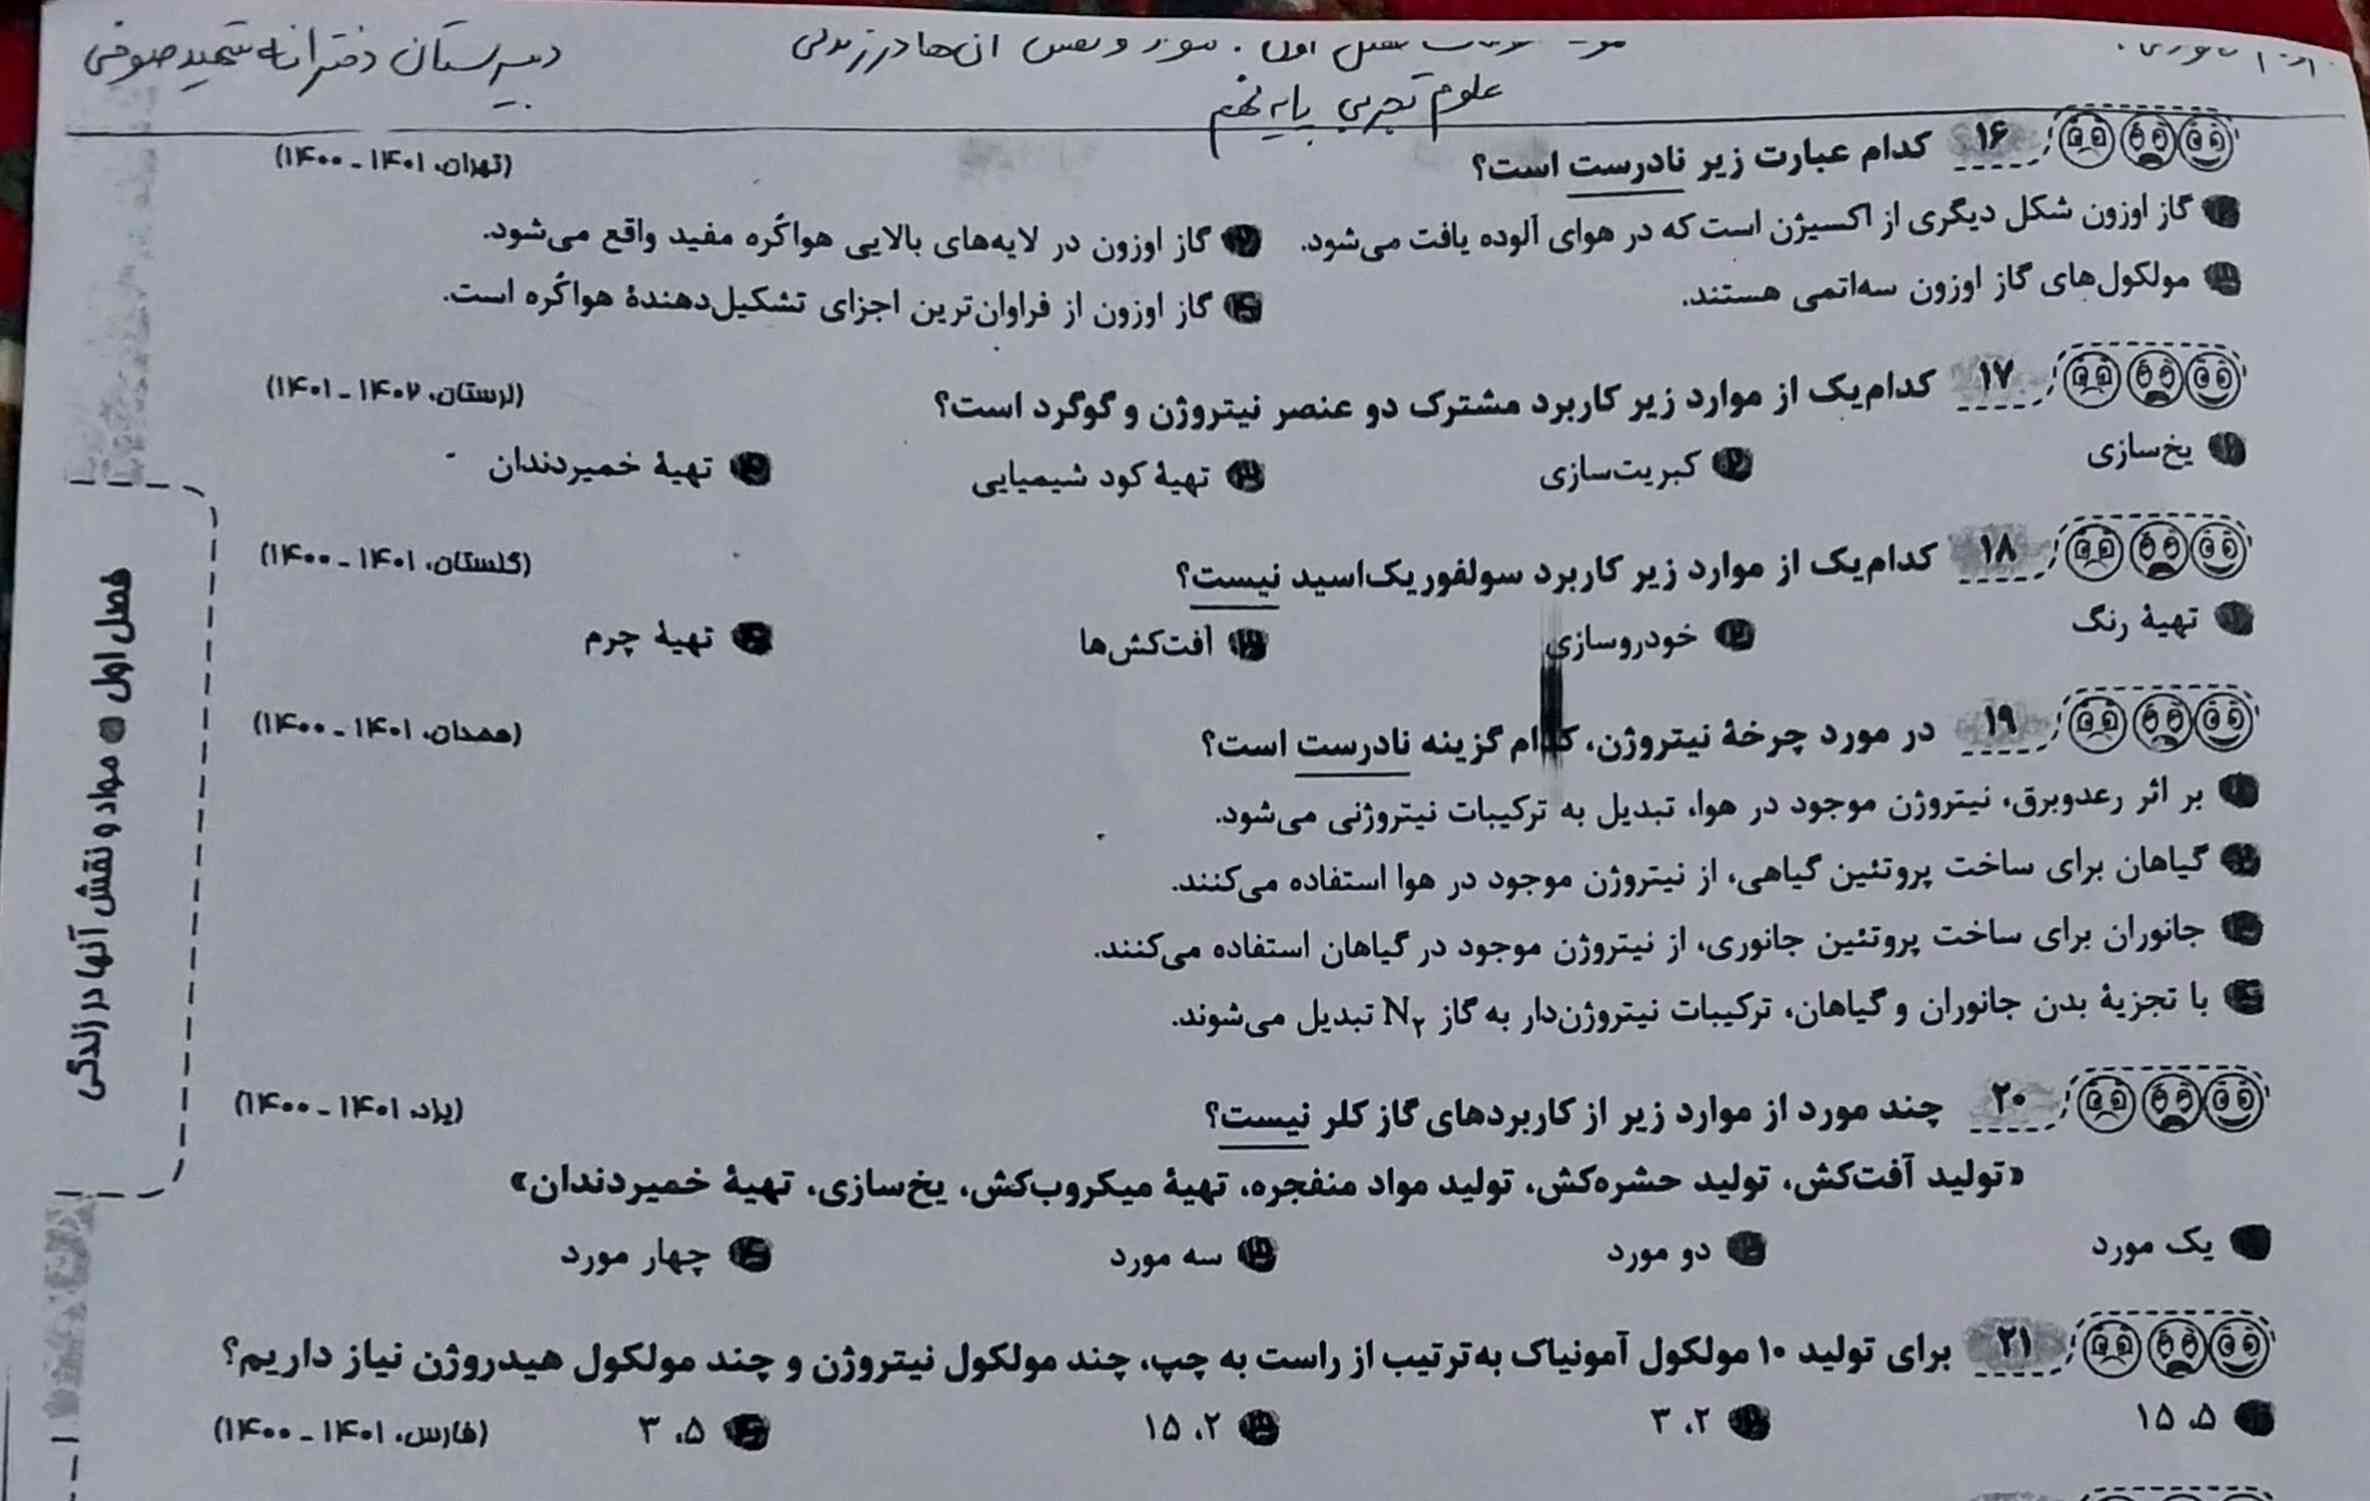 دبیرستان دخترانه شهید صوفی
علوم تجربی پایه نهم
۱۶ کدام عبارت زیر نادرست است؟ (تهران، ۱۴۰۱ - ۱۴۰۰)
۱ گاز اوزون شکل دیگری از اکسیژن است که در هوای آلوده یافت می‌شود. ۲ گاز اوزون در لایه‌های بالایی هواکُره مفید واقع می‌شود.
۳ مولکول‌های گاز اوزون سه‌اتمی هستند. ۴ گاز اوزون از فراوان‌ترین اجزای تشکیل‌دهندهٔ هواکُره است.
۱۷ کدام‌یک از موارد زیر کاربرد مشترک دو عنصر نیتروژن و گوگرد است؟ (لرستان، ۱۴۰۲ - ۱۴۰۱)
۱ یخ‌سازی ۲ کبریت‌سازی ۳ تهیهٔ کود شیمیایی ۴ تهیهٔ خمیردندان
۱۸ کدام‌یک از موارد زیر کاربرد سولفوریک‌اسید نیست؟ (گلستان، ۱۴۰۱ - ۱۴۰۰)
۱ تهیهٔ رنگ ۲ خودروسازی ۳ آفت‌کش‌ها ۴ تهیهٔ چرم
۱۹ در مورد چرخهٔ نیتروژن، کدام گزینه نادرست است؟ (همدان، ۱۴۰۱ - ۱۴۰۰)
۱ بر اثر رعدوبرق، نیتروژن موجود در هوا، تبدیل به ترکیبات نیتروژنی می‌شود.
۲ گیاهان برای ساخت پروتئین گیاهی، از نیتروژن موجود در هوا استفاده می‌کنند.
۳ جانوران برای ساخت پروتئین جانوری، از نیتروژن موجود در گیاهان استفاده می‌کنند.
۴ با تجزیهٔ بدن جانوران و گیاهان، ترکیبات نیتروژن‌دار به گاز N₂ تبدیل می‌شوند.
۲۰ چند مورد از موارد زیر از کاربردهای گاز کلر نیست؟ (یزد، ۱۴۰۱ - ۱۴۰۰)
«تولید آفت‌کش، تولید حشره‌کش، تولید مواد منفجره، تهیهٔ میکروب‌کش، یخ‌سازی، تهیهٔ خمیردندان»
۱ یک مورد ۲ دو مورد ۳ سه مورد ۴ چهار مورد
۲۱ برای تولید ۱۰ مولکول آمونیاک به‌ترتیب از راست به چپ، چند مولکول نیتروژن و چند مولکول هیدروژن نیاز داریم؟
۱ ۵، ۱۵ ۲ ۲، ۳ ۳ ۲، ۱۵ ۴ ۵، ۳ (فارس، ۱۴۰۱ - ۱۴۰۰)
فصل اول ● مواد و نقش آنها در زندگی